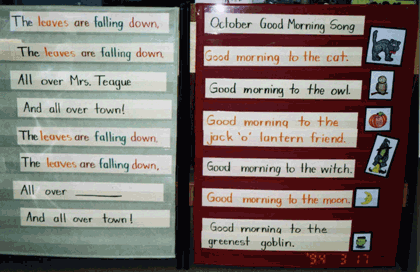 The leaves are falling down,
The leaves are falling down,
All over Mrs. Teague
And all over town!
The leaves are falling down.
The leaves are falling down,
All over ______
And all over town!
October Good Morning Song
Good morning to the cat.
Good morning to the owl.
Good morning to the
jack 'o' lantern friend.
Good morning to the witch.
Good morning to the moon.
Good morning to the
greenest goblin.
'94 3 17